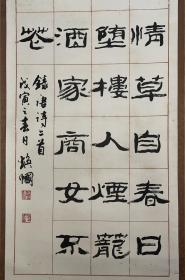 情草自春日
堕樓人煙籠
酒家商女不
花
錄唐詩二首
戊寅之春月